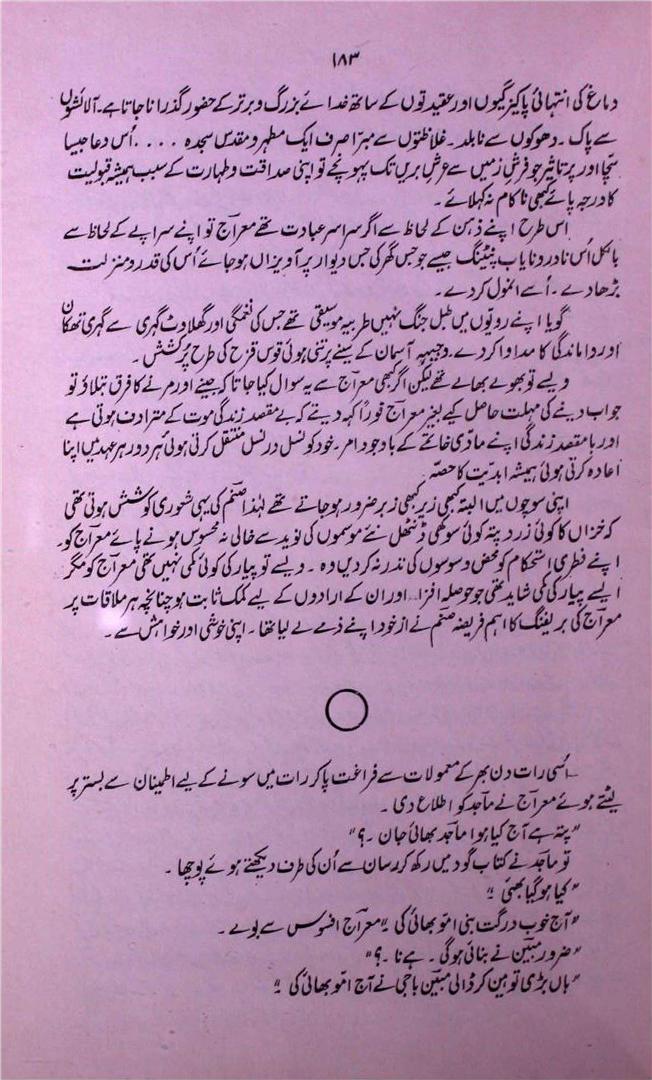 ۱۸۳
دماغ کی انتہائی پاکیزگیوں اور عقیدتوں کے ساتھ خدائے بزرگ و برتر کے حضور گذرانا جاتا ہے۔ آلائشوں
سے پاک۔ دھوکوں سے نابلد۔ غلاظتوں سے مبرّا صرف ایک مطہر و مقدس سجدہ .... اُس دعا جیسا
سچّا اور پرتاثیر جو فرشِ زمیں سے عرشِ بریں تک پہونچے تو اپنی صداقت و طہارت کے سبب ہمیشہ قبولیت
کا درجہ پائے کبھی ناکام نہ کہلائے۔
اس طرح اپنے ذہن کے لحاظ سے اگر سراسر عبادت تھے معراج تو اپنے سراپے کے لحاظ سے
بالکل اُس نادر و نایاب پنٹینگ جیسے جو جس گھر کی جس دیوار پر آویزاں ہو جائے اُس کی قدر و منزلت
بڑھا دے۔ اُسے انمول کر دے۔
گویا اپنے رویّوں میں طبل جنگ نہیں طربیہ موسیقی تھے جس کی نغمگی اور گھلاوٹ گہری سے گہری تھکان
اور واماندگی کا مداوا کر دے۔ وجیہہ آسمان کے سینے پر تنی ہوئی قوس قزح کی طرح پُرکشش۔
ویسے تو بھولے بھالے تھے لیکن اگر کبھی معراج سے یہ سوال کیا جاتا کہ جینے اور مرنے کا فرق بتلاؤ تو
جواب دینے کی مہلت حاصل کیے بغیر معراج فوراً کہہ دیتے کہ بے مقصد زندگی موت کے مترادف ہوتی ہے
اور بامقصد زندگی اپنے مادّی خاتمے کے باوجود امر۔ خود کو نسل در نسل منتقل کرتی ہوئی ہر دور ہر عہد میں اپنا
اعادہ کرتی ہوئی ہمیشہ ابدیّت کا حصّہ
اپنی سوچوں میں البتہ کبھی زیر کبھی زبر ضرور ہو جاتے تھے لہٰذا صنم کی یہی شعوری کوشش ہوتی تھی
کہ خزاں کا کوئی زرد پتہ کوئی سوکھی ڈنٹھل نئے موسموں کی نوید سے خالی نہ محسوس ہونے پائے معراج کو۔
اپنے فطری استحکام کو محض وسوسوں کی نذر نہ کر دیں وہ۔ ویسے تو پیار کی کوئی کمی نہیں تھی معراج کو مگر
ایسے پیار کی کمی شاید تھی جو حوصلہ افزا.. اور ان کے ارادوں کے لیے کمک ثابت ہو چنانچہ ہر ملاقات پر
معراج کی بریفنگ کا اہم فریضہ صنم نے از خود اپنے ذمے لے لیا تھا۔ اپنی خوشی اور خواہش سے۔
۔اُسی رات دن بھر کے معمولات سے فراغت پا کر رات میں سونے کے لیے اطمینان سے بستر پر
لیٹتے ہوئے معراج نے ماجد کو اطلاع دی۔
"پتہ ہے آج کیا ہوا ماجد بھائی جان۔؟"
تو ماجد نے کتاب گود میں رکھ کر رسان سے اُن کی طرف دیکھتے ہوئے پوچھا۔
"کیا ہو گیا بھئی۔"
"آج خوب درگت بنی امّو بھائی کی۔" معراج افسوس سے بولے۔
"ضرور مبین نے بنائی ہوگی۔ ہے نا۔؟"
"ہاں بڑی توہین کر ڈالی مبین باجی نے آج امّو بھائی کی۔"